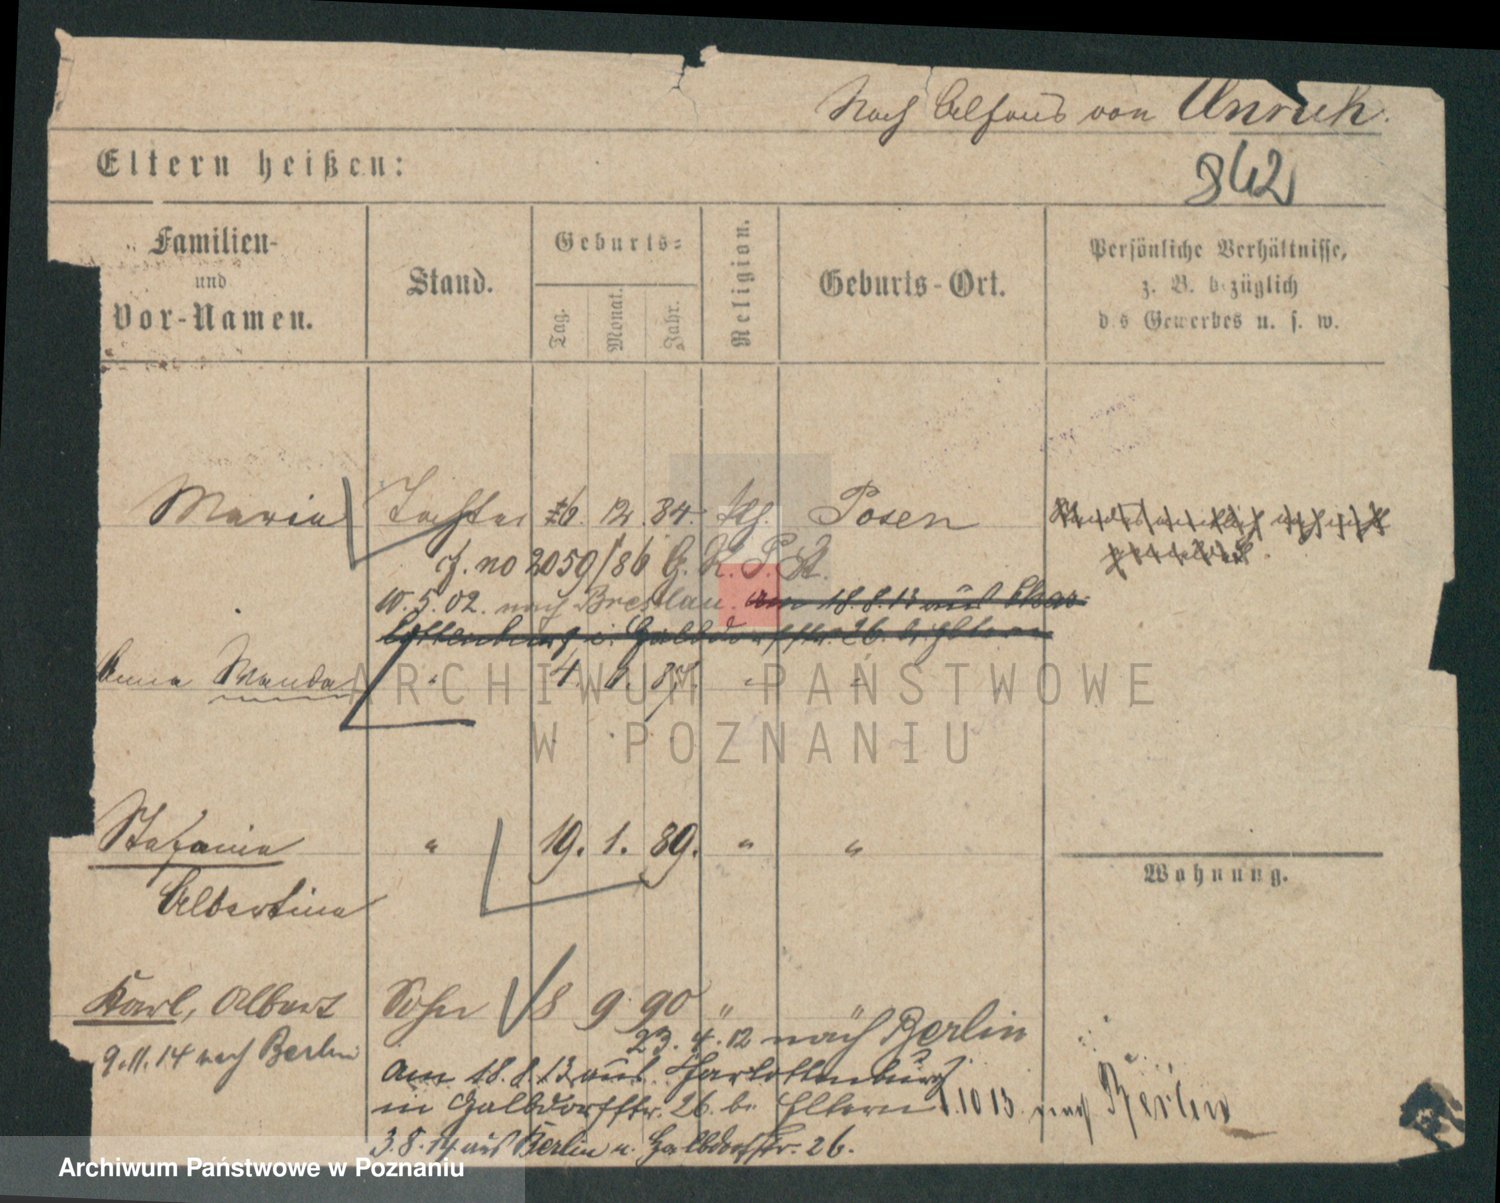 Nach Alfons von Unruh.
Eltern heißen:
842
Familien-
und
Vor-Namen.
Stand.
Geburts-
Tag.
Monat.
Jahr.
Religion.
Geburts-Ort.
Persönliche Verhältnisse,
z. B. bezüglich
des Gewerbes u. s. w.
Maria Tochter 26. 12. 84. kth. Posen
cf. no 2059/86 G. K. P. A.
10. 5. 02. nach Breslau. am 18.8.13 aus Char-
lottenburg i. 26. b. Eltern
Anna Wanda " 4. 87. " "
Stefania " 19. 1. 89. " "
Albertina
Wohnung.
Karl, Albert Sohn 8 9 90 " "
23. 4. 12 nach Berlin
9.11.14 nach Berlin
am 18.8.13 aus Charlottenburg
in 26. b. Eltern 1.10 13. nach Berlin
3.8.14 aus Berlin n. 26.
ARCHIWUM PAŃSTWOWE
W POZNANIU
Archiwum Państwowe w Poznaniu